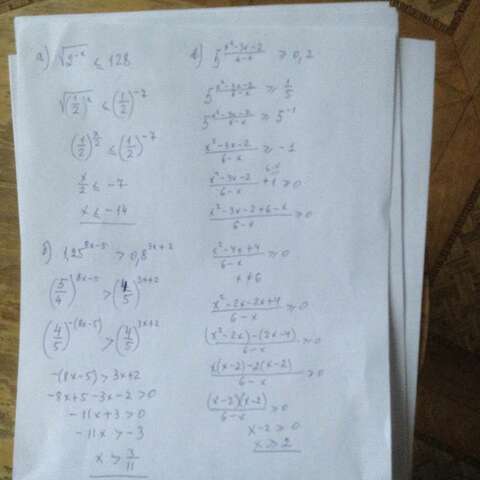 а) √2^{-x} ≤ 128
√(1/2)^x ≤ (1/2)^{-7}
(1/2)^{x/2} ≤ (1/2)^{-7}
x/2 ≤ -7
x ≤ -14
б) 1,25^{8x-5} > 0,8^{3x+2}
(5/4)^{8x-5} > (4/5)^{3x+2}
(4/5)^{-(8x-5)} > (4/5)^{3x+2}
-(8x-5) > 3x+2
-8x+5-3x-2 > 0
-11x+3 > 0
-11x > -3
x > 3/11
в) 5^{(x²-3x-2)/(6-x)} ≥ 0,2
5^{(x²-3x-2)/(6-x)} ≥ 1/5
5^{(x²-3x-2)/(6-x)} ≥ 5^{-1}
(x²-3x-2)/(6-x) ≥ -1
(x²-3x-2)/(6-x) + 1^{6-x} ≥ 0
(x²-3x-2+6-x)/(6-x) ≥ 0
(x²-4x+4)/(6-x) ≥ 0
x ≠ 6
(x²-2x-2x+4)/(6-x) ≥ 0
((x²-2x)-(2x-4))/(6-x) ≥ 0
(x(x-2)-2(x-2))/(6-x) ≥ 0
((x-2)(x-2))/(6-x) ≥ 0
x-2 ≥ 0
x ≥ 2